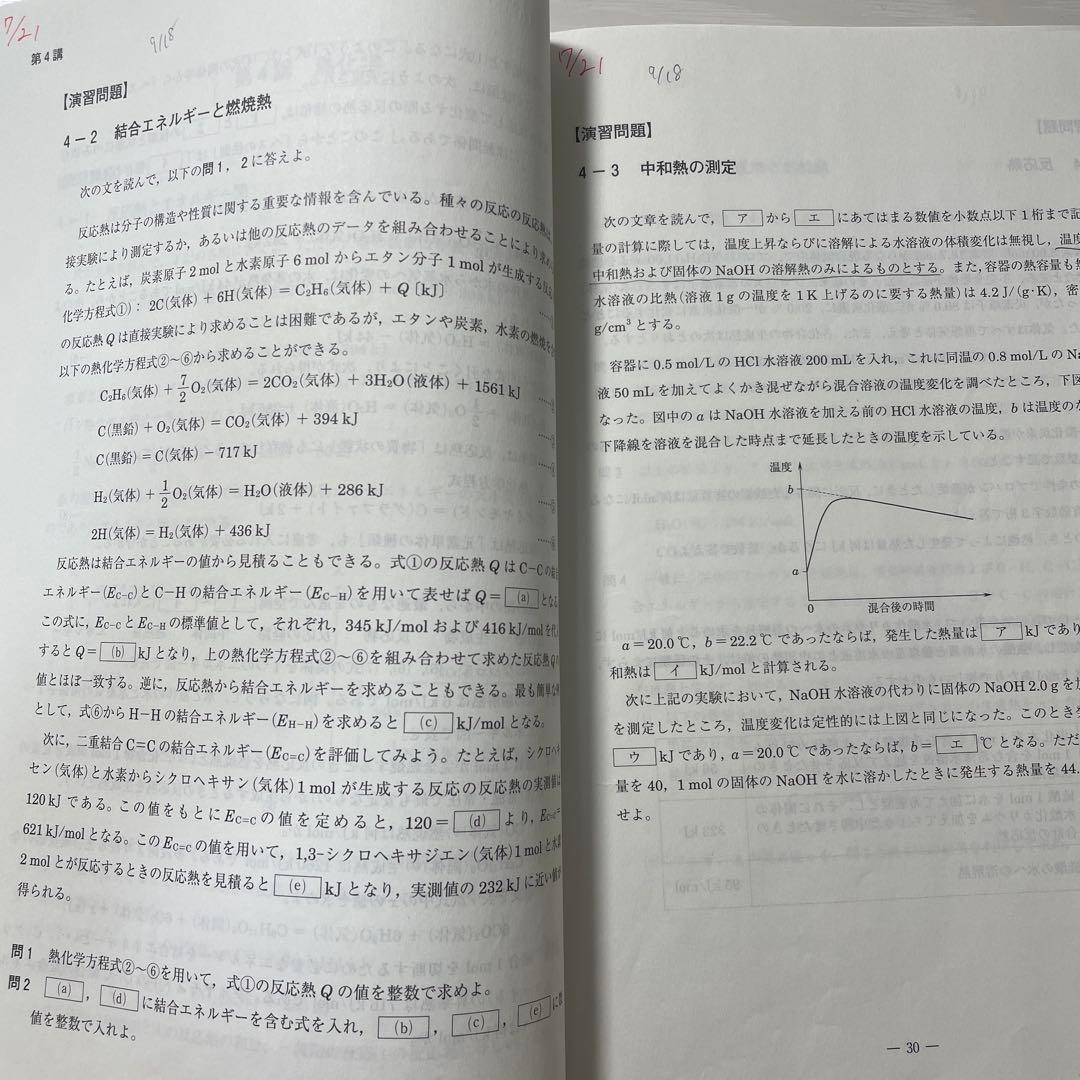 7/21
9/18
第4講
【演習問題】
4－2 結合エネルギーと燃焼熱
次の文を読んで，以下の問1，2に答えよ。
反応熱は分子の構造や性質に関する重要な情報を含んでいる。種々の反応の反応熱は
接実験により測定するか，あるいは他の反応熱のデータを組み合わせることにより求め
る。たとえば，炭素原子2molと水素原子6molからエタン分子1molが生成する反応
化学方程式①)：2C(気体)＋6H(気体)＝C₂H₆(気体)＋Q〔kJ〕
の反応熱Qは直接実験により求めることは困難であるが，エタンや炭素，水素の燃焼熱を
以下の熱化学方程式②～⑥から求めることができる。
C₂H₆(気体)＋7/2 O₂(気体)＝2CO₂(気体)＋3H₂O(液体)＋1561kJ
C(黒鉛)＋O₂(気体)＝CO₂(気体)＋394kJ
C(黒鉛)＝C(気体)－717kJ
H₂(気体)＋1/2 O₂(気体)＝H₂O(液体)＋286kJ
2H(気体)＝H₂(気体)＋436kJ
反応熱は結合エネルギーの値から見積ることもできる。式①の反応熱QはC－Cの結合
エネルギー(E_C-C)とC－Hの結合エネルギー(E_C-H)を用いて表せばQ＝(a)となる
この式に，E_C-CとE_C-Hの標準値として，それぞれ，345kJ/molおよび416kJ/molを代
するとQ＝(b)kJとなり，上の熱化学方程式②～⑥を組み合わせて求めた反応熱Qの
値とほぼ一致する。逆に，反応熱から結合エネルギーを求めることもできる。最も簡単な
として，式⑥からH－Hの結合エネルギー(E_H-H)を求めると(c)kJ/molとなる。
次に，二重結合C＝Cの結合エネルギー(E_C=C)を評価してみよう。たとえば，シクロヘキ
セン(気体)と水素からシクロヘキサン(気体)1molが生成する反応の反応熱の実測値は
120kJである。この値をもとにE_C=Cの値を定めると，120＝(d)より，E_C=C＝
621kJ/molとなる。このE_C=Cの値を用いて，1,3-シクロヘキサジエン(気体)1molと水素
2molとが反応するときの反応熱を見積ると(e)kJとなり，実測値の232kJに近い値が
得られる。
問1 熱化学方程式②～⑥を用いて，式①の反応熱Qの値を整数で求めよ。
問2 (a)，(d)に結合エネルギーを含む式を入れ，(b)，(c)，(e)に
値を整数で入れよ。
7/21
9/18
【演習問題】
4－3 中和熱の測定
次の文章を読んで，アからエにあてはまる数値を小数点以下1桁まで記
量の計算に際しては，温度上昇ならびに溶解による水溶液の体積変化は無視し，温度
中和熱および固体のNaOHの溶解熱のみによるものとする。また，容器の熱容量も無
水溶液の比熱(溶液1gの温度を1K上げるのに要する熱量)は4.2J/(g・K)，密
g/cm³とする。
容器に0.5mol/LのHCl水溶液200mLを入れ，これに同温の0.8mol/LのNa
液50mLを加えてよくかき混ぜながら混合溶液の温度変化を調べたところ，下図
なった。図中のaはNaOH水溶液を加える前のHCl水溶液の温度，bは温度のな
下降線を溶液を混合した時点まで延長したときの温度を示している。
温度
b
a
0
混合後の時間
a＝20.0℃，b＝22.2℃であったならば，発生した熱量はアkJであり
和熱はイkJ/molと計算される。
次に上記の実験において，NaOH水溶液の代わりに固体のNaOH2.0gを加
を測定したところ，温度変化は定性的には上図と同じになった。このとき発
ウkJであり，a＝20.0℃であったならば，b＝エ℃となる。ただ
量を40，1molの固体のNaOHを水に溶かしたときに発生する熱量を44.
せよ。
― 30 ―